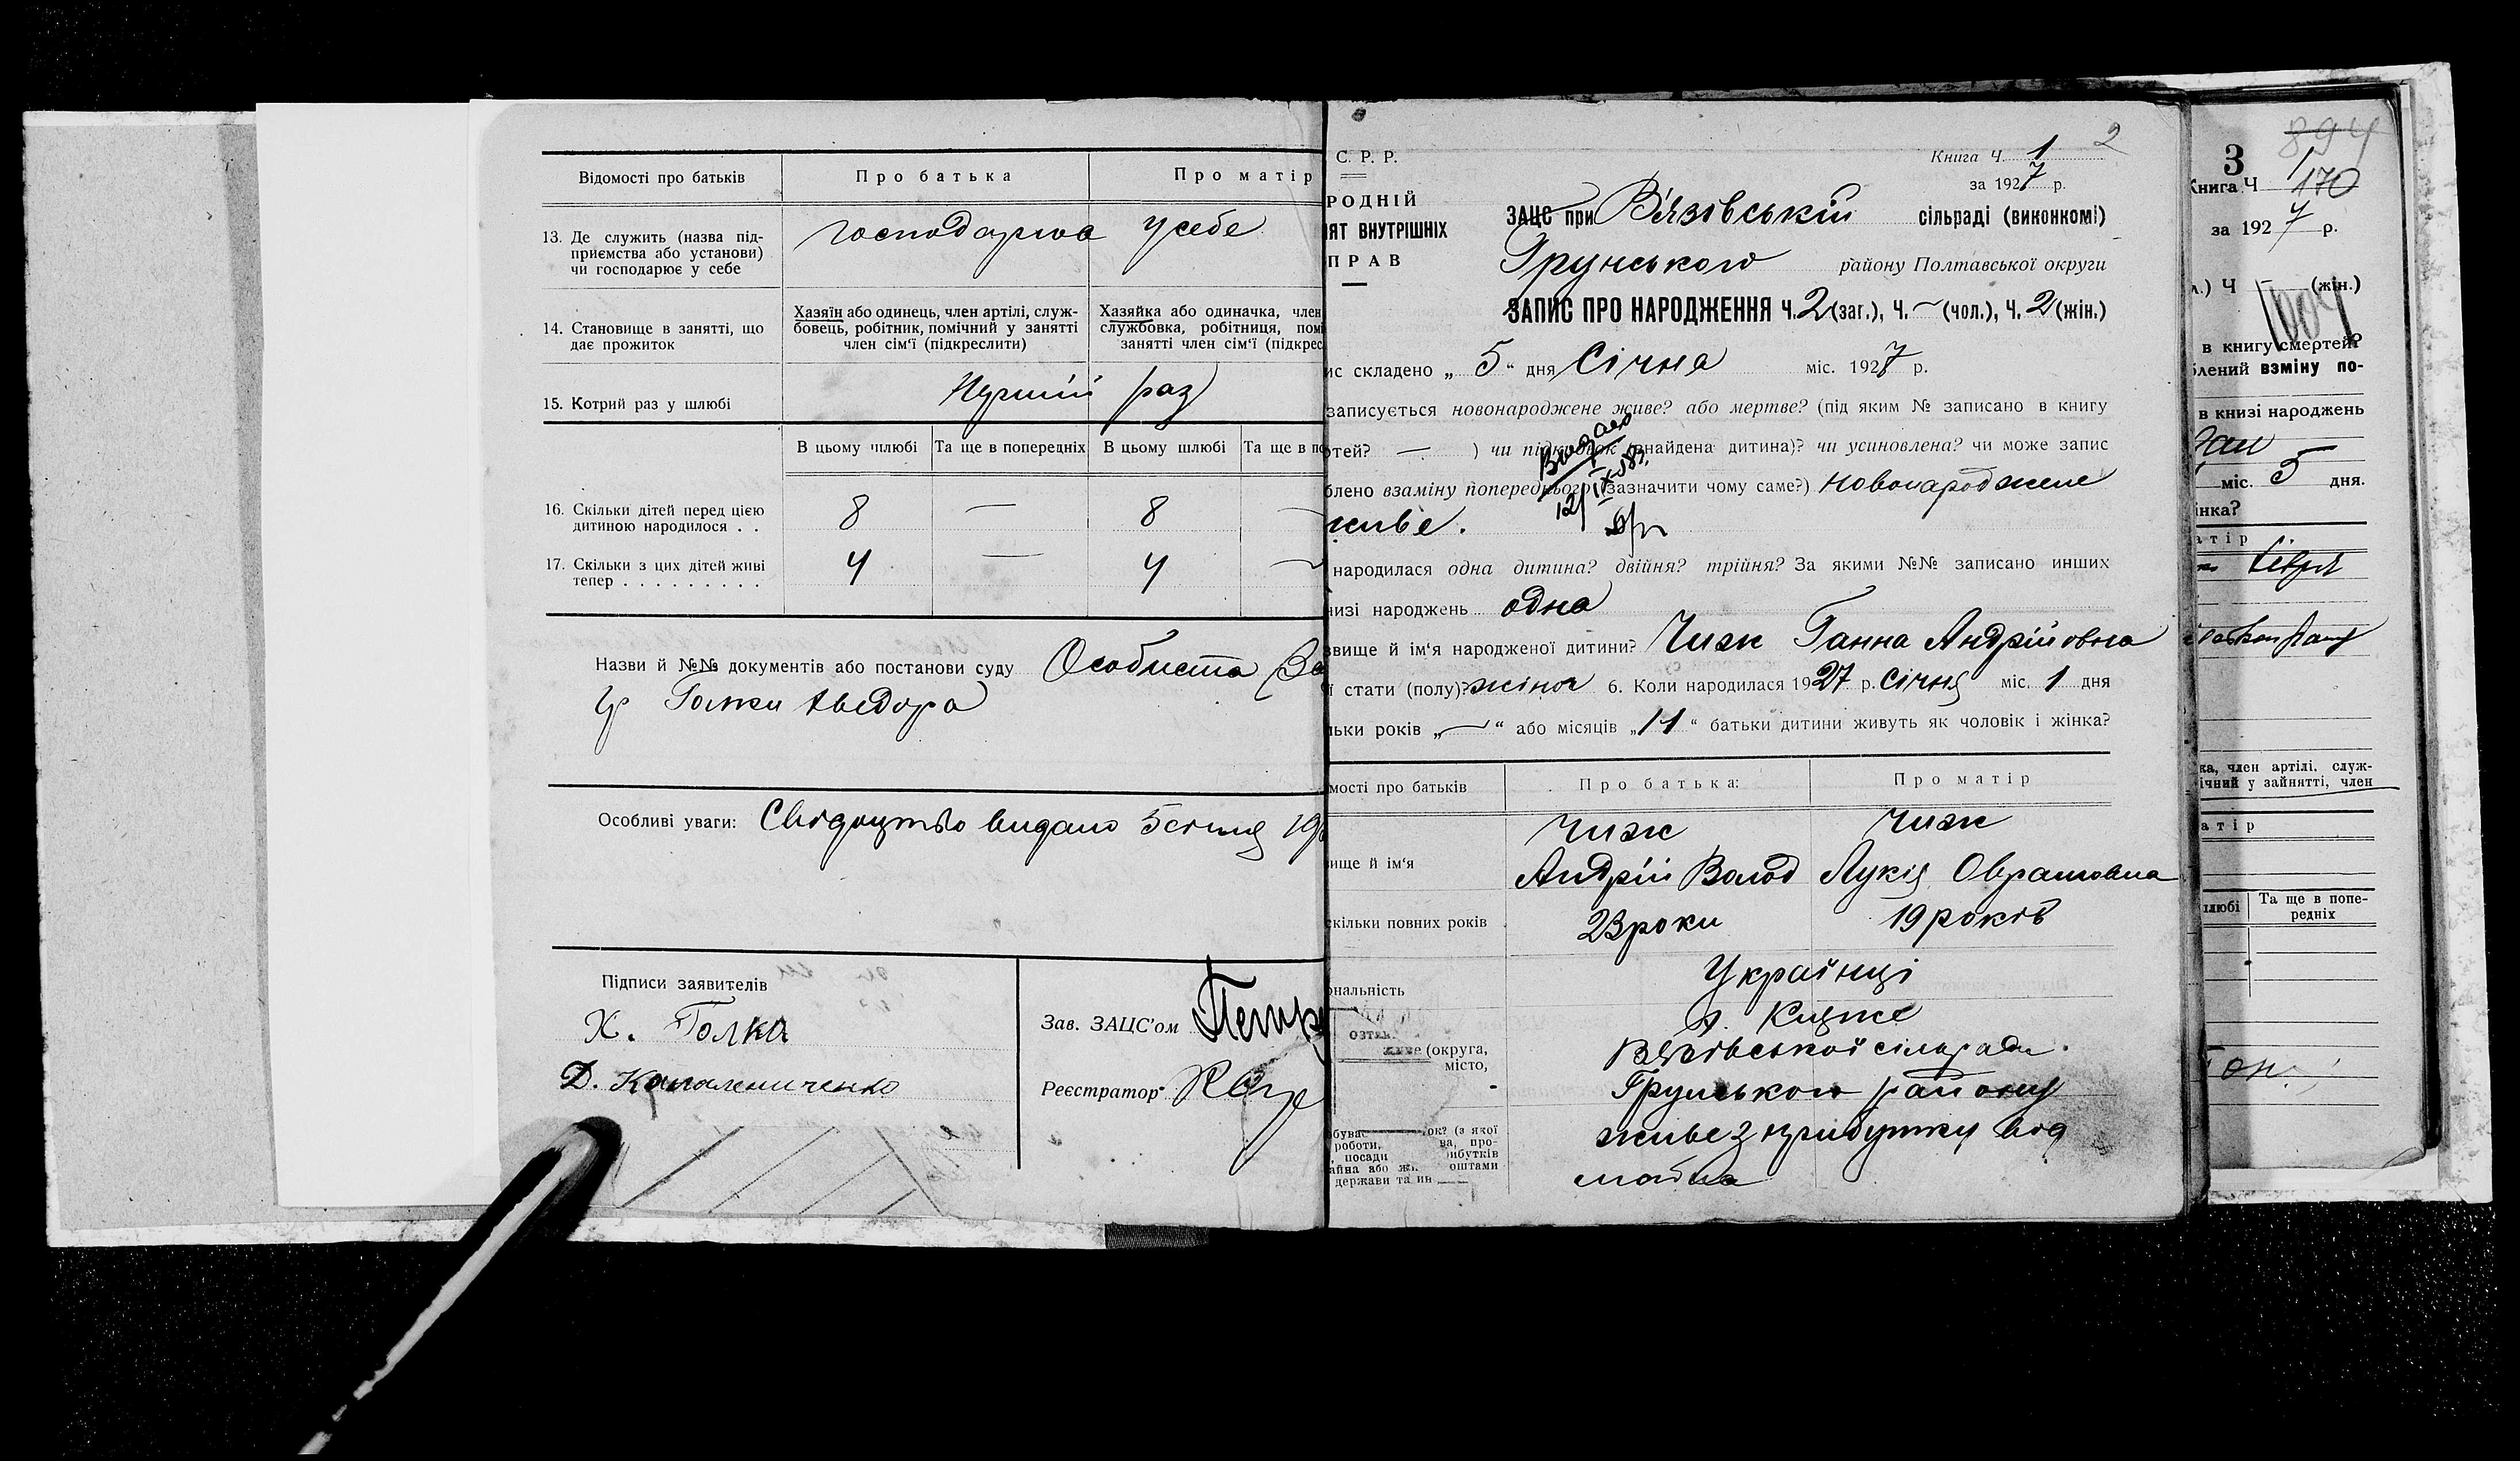 Відомості про батьків
Про батька
Про матір
13. Де служить (назва під-
приємства або установи)
чи господарює у себе
господарюа у себе
14. Становище в занятті, що
дає прожиток
Хазяїн або одинець, член артілі, служ-
бовець, робітник, помічний у занятті
член сім'ї (підкреслити)
Хазяйка або одиначка, член
службовка, робітниця, помі
занятті член сім'ї (підкрес
15. Котрий раз у шлюбі
Перший раз
В цьому шлюбі
Та ще в попередніх
В цьому шлюбі
Та ще в по
16. Скільки дітей перед цією
дитиною народилося . .
8 — 8
17. Скільки з цих дітей живі
тепер . . . . . . . . .
4 — 4
Назви й №№ документів або постанови суду Особиста
Голки Хведора
Особливі уваги: Свідоцтво видано 5 січня 19
Підписи заявителів
Х. Голка
Д.
Зав. ЗАЦС'ом
Реєстратор
С. Р. Р.
РОДНІЙ
ІЯТ ВНУТРІШНІХ
ПРАВ
2
Книга Ч. 1
за 1927 р.
ЗАЦС при Вязівській сільраді (виконкомі)
Грунського району Полтавської округи
ЗАПИС ПРО НАРОДЖЕННЯ Ч. 2 (заг.), Ч. — (чол.), Ч. 2 (жін.)
ис складено „ 5 " дня Січня міс. 1927 р.
записується новонароджене живе? або мертве? (під яким № записано в книгу
ртей? — ) чи підкидьок (знайдена дитина)? чи усиновлена? чи може запис
блено взаміну попереднього (зазначити чому саме?) новонароджене
живе.
Видано
12/IX 83.
народилася одна дитина? двійня? трійня? За якими №№ записано инших
низі народжень одна
звище й ім'я народженої дитини? Чиж Ганна Андрійовна
ї стати (полу)? жіноч 6. Коли народилася 1927 р. січня міс. 1 дня
льки років „ — " або місяців „ 11 " батьки дитини живуть як чоловік і жінка?
мості про батьків
Про батька:
Про матір
вище й ім'я
Чиж
Андрій Волод
Чиж
Лукія Оврамовна
скільки повних років
23 роки
19 років
ональність
Українці
х. Княже
Вязівської сільради.
Грунського району
живе (округа,
місто,
ок? (з якої
роботи,
ва, про-
, посади
ибутків
айна або
оштами
держави та ин
живе з прибутку від
майна
3
894
Книга Ч 1
170
за 1927 р.
л.) Ч — (жін.)
1004
в книгу смертей?
блений взміну по-
в книзі народжень
міс. 5 дня.
інка?
атір
ка, член артілі, служ-
ічний у зайнятті, член
атір
шлюбі
Та ще в попе-
редніх